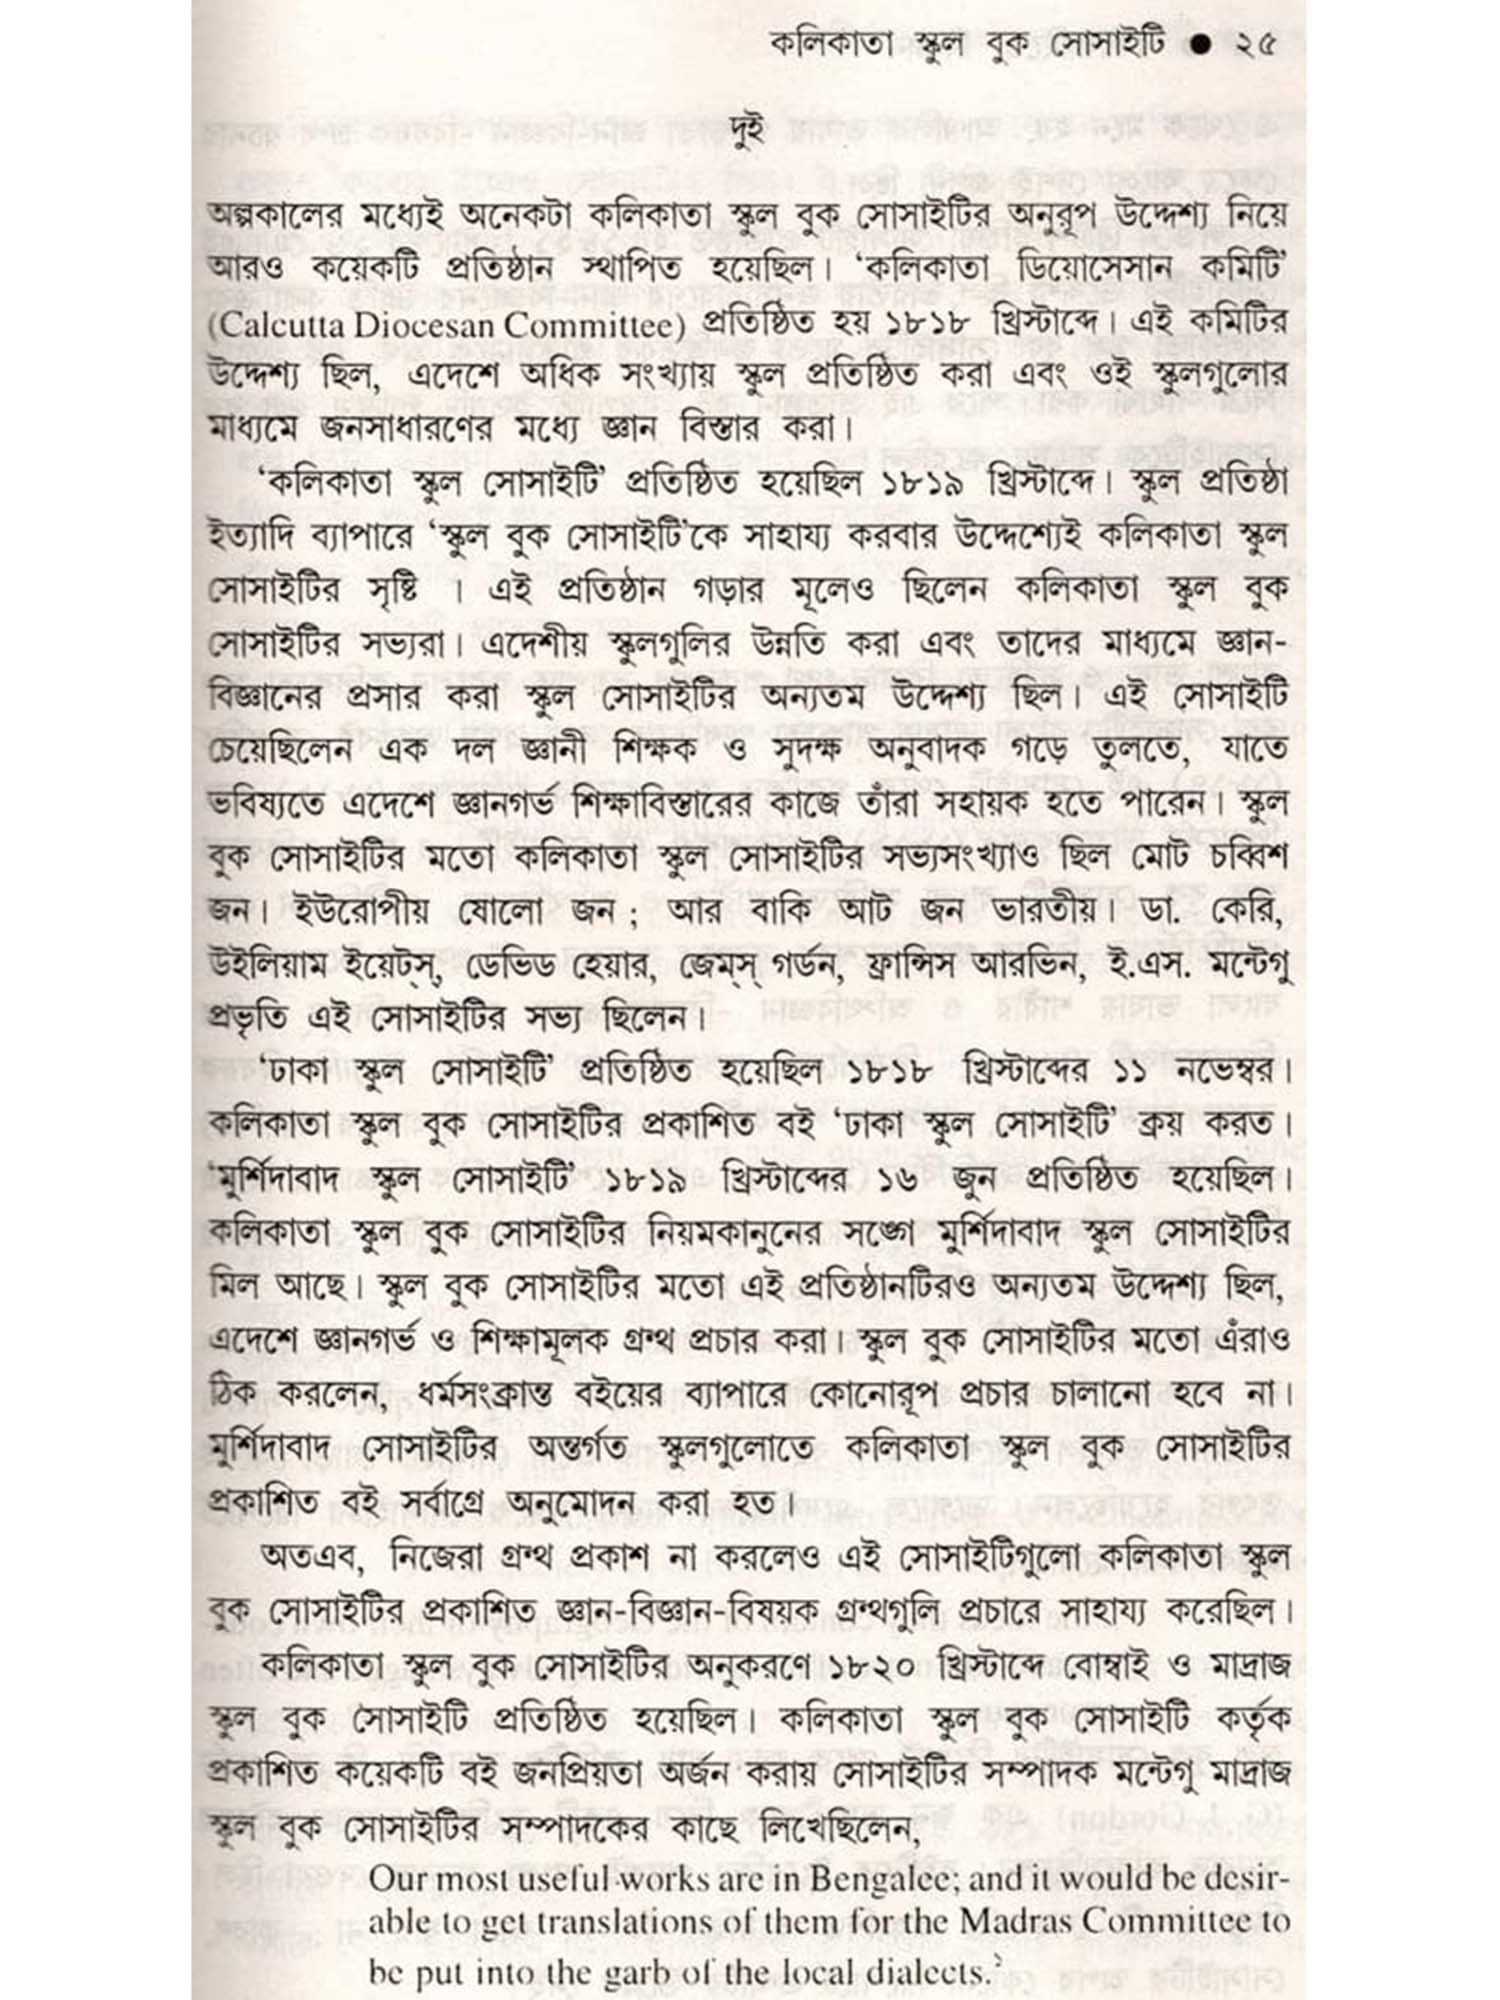 কলিকাতা স্কুল বুক সোসাইটি ● ২৫
দুই
অল্পকালের মধ্যেই অনেকটা কলিকাতা স্কুল বুক সোসাইটির অনুরূপ উদ্দেশ্য নিয়ে
আরও কয়েকটি প্রতিষ্ঠান স্থাপিত হয়েছিল। ‘কলিকাতা ডিয়োসেসান কমিটি’
(Calcutta Diocesan Committee) প্রতিষ্ঠিত হয় ১৮১৮ খ্রিস্টাব্দে। এই কমিটির
উদ্দেশ্য ছিল, এদেশে অধিক সংখ্যায় স্কুল প্রতিষ্ঠিত করা এবং ওই স্কুলগুলোর
মাধ্যমে জনসাধারণের মধ্যে জ্ঞান বিস্তার করা।
‘কলিকাতা স্কুল সোসাইটি’ প্রতিষ্ঠিত হয়েছিল ১৮১৯ খ্রিস্টাব্দে। স্কুল প্রতিষ্ঠা
ইত্যাদি ব্যাপারে ‘স্কুল বুক সোসাইটি’কে সাহায্য করবার উদ্দেশ্যেই কলিকাতা স্কুল
সোসাইটির সৃষ্টি । এই প্রতিষ্ঠান গড়ার মূলেও ছিলেন কলিকাতা স্কুল বুক
সোসাইটির সভ্যরা। এদেশীয় স্কুলগুলির উন্নতি করা এবং তাদের মাধ্যমে জ্ঞান-
বিজ্ঞানের প্রসার করা স্কুল সোসাইটির অন্যতম উদ্দেশ্য ছিল। এই সোসাইটি
চেয়েছিলেন এক দল জ্ঞানী শিক্ষক ও সুদক্ষ অনুবাদক গড়ে তুলতে, যাতে
ভবিষ্যতে এদেশে জ্ঞানগর্ভ শিক্ষাবিস্তারের কাজে তাঁরা সহায়ক হতে পারেন। স্কুল
বুক সোসাইটির মতো কলিকাতা স্কুল সোসাইটির সভ্যসংখ্যাও ছিল মোট চব্বিশ
জন। ইউরোপীয় ষোলো জন ; আর বাকি আট জন ভারতীয়। ডা. কেরি,
উইলিয়াম ইয়েটস্, ডেভিড হেয়ার, জেম্‌স্ গর্ডন, ফ্রান্সিস আরভিন, ই.এস. মন্টেগু
প্রভৃতি এই সোসাইটির সভ্য ছিলেন।
‘ঢাকা স্কুল সোসাইটি’ প্রতিষ্ঠিত হয়েছিল ১৮১৮ খ্রিস্টাব্দের ১১ নভেম্বর।
কলিকাতা স্কুল বুক সোসাইটির প্রকাশিত বই ‘ঢাকা স্কুল সোসাইটি’ ক্রয় করত।
‘মুর্শিদাবাদ স্কুল সোসাইটি’ ১৮১৯ খ্রিস্টাব্দের ১৬ জুন প্রতিষ্ঠিত হয়েছিল।
কলিকাতা স্কুল বুক সোসাইটির নিয়মকানুনের সঙ্গে মুর্শিদাবাদ স্কুল সোসাইটির
মিল আছে। স্কুল বুক সোসাইটির মতো এই প্রতিষ্ঠানটিরও অন্যতম উদ্দেশ্য ছিল,
এদেশে জ্ঞানগর্ভ ও শিক্ষামূলক গ্রন্থ প্রচার করা। স্কুল বুক সোসাইটির মতো এঁরাও
ঠিক করলেন, ধর্মসংক্রান্ত বইয়ের ব্যাপারে কোনোরূপ প্রচার চালানো হবে না।
মুর্শিদাবাদ সোসাইটির অন্তর্গত স্কুলগুলোতে কলিকাতা স্কুল বুক সোসাইটির
প্রকাশিত বই সর্বাগ্রে অনুমোদন করা হত ।
অতএব, নিজেরা গ্রন্থ প্রকাশ না করলেও এই সোসাইটিগুলো কলিকাতা স্কুল
বুক সোসাইটির প্রকাশিত জ্ঞান-বিজ্ঞান-বিষয়ক গ্রন্থগুলি প্রচারে সাহায্য করেছিল।
কলিকাতা স্কুল বুক সোসাইটির অনুকরণে ১৮২০ খ্রিস্টাব্দে বোম্বাই ও মাদ্রাজ
স্কুল বুক সোসাইটি প্রতিষ্ঠিত হয়েছিল। কলিকাতা স্কুল বুক সোসাইটি কর্তৃক
প্রকাশিত কয়েকটি বই জনপ্রিয়তা অর্জন করায় সোসাইটির সম্পাদক মন্টেগু মাদ্রাজ
স্কুল বুক সোসাইটির সম্পাদকের কাছে লিখেছিলেন,
Our most useful works are in Bengalee; and it would be desir-
able to get translations of them for the Madras Committee to
be put into the garb of the local dialects.২